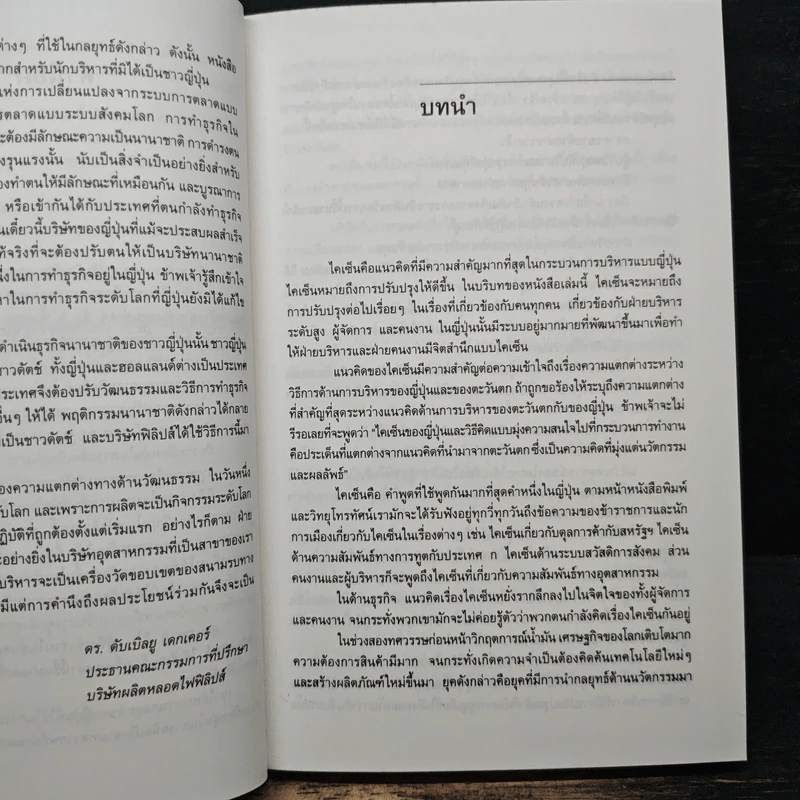 ต่างๆ ที่ใช้ในกลยุทธ์ดังกล่าว ดังนั้น หนังสือ
ากสำหรับนักบริหารที่มิได้เป็นชาวญี่ปุ่น
แห่งการเปลี่ยนแปลงจากระบบการตลาดแบบ
ารตลาดแบบระบบสังคมโลก การทำธุรกิจใน
ะต้องมีลักษณะความเป็นนานาชาติ การดำรงตน
งรุนแรงนั้น นับเป็นสิ่งจำเป็นอย่างยิ่งสำหรับ
องทำตนให้มีลักษณะที่เหมือนกัน และบูรณาการ
หรือเข้ากันได้กับประเทศที่ตนกำลังทำธุรกิจ
นเดี๋ยวนี้บริษัทของญี่ปุ่นที่แม้จะประสบผลสำเร็จ
ท้จริงที่จะต้องปรับตนให้เป็นบริษัทนานาชาติ
นึ่งในการทำธุรกิจอยู่ในญี่ปุ่น ข้าพเจ้ารู้สึกเข้าใจ
หาในการทำธุรกิจระดับโลกที่ญี่ปุ่นยังมิได้แก้ไข
ดำเนินธุรกิจนานาชาติของชาวญี่ปุ่นนั้น ชาวญี่ปุ่น
าวดัตช์ ทั้งญี่ปุ่นและฮอลแลนด์ต่างเป็นประเทศ
ระเทศจึงต้องปรับวัฒนธรรมและวิธีการทำธุรกิจ
อื่นๆ ให้ได้ พฤติกรรมนานาชาติดังกล่าวได้กลาย
เป็นชาวดัตช์ และบริษัทฟิลิปส์ได้ใช้วิธีการนี้มา
องความแตกต่างทางด้านวัฒนธรรม ในวันหนึ่ง
ดับโลก และเพราะการผลิตจะเป็นกิจกรรมระดับโลก
ฏิบัติที่ถูกต้องตั้งแต่เริ่มแรก อย่างไรก็ตาม ฝ่าย
ะอย่างยิ่งในบริษัทอุตสาหกรรมที่เป็นสาขาของเรา
บริหารจะเป็นเครื่องวัดขอบเขตของสนามรบทาง
มีแต่การคำนึงถึงผลประโยชน์ร่วมกันจึงจะเป็น
ดร. ดับเบิลยู เดกเคอร์
ประธานคณะกรรมการที่ปรึกษา
บริษัทผลิตหลอดไฟฟิลิปส์
บทนำ
ไคเซ็นคือแนวคิดที่มีความสำคัญมากที่สุดในกระบวนการบริหารแบบญี่ปุ่น
ไคเซ็นหมายถึงการปรับปรุงให้ดีขึ้น ในบริบทของหนังสือเล่มนี้ ไคเซ็นจะหมายถึง
การปรับปรุงต่อไปเรื่อยๆ ในเรื่องที่เกี่ยวข้องกับคนทุกคน เกี่ยวข้องกับฝ่ายบริหาร
ระดับสูง ผู้จัดการ และคนงาน ในญี่ปุ่นนั้นมีระบบอยู่มากมายที่พัฒนาขึ้นมาเพื่อทำ
ให้ฝ่ายบริหารและฝ่ายคนงานมีจิตสำนึกแบบไคเซ็น
แนวคิดของไคเซ็นมีความสำคัญต่อความเข้าใจถึงเรื่องความแตกต่างระหว่าง
วิธีการด้านการบริหารของญี่ปุ่นและของตะวันตก ถ้าถูกขอร้องให้ระบุถึงความแตกต่าง
ที่สำคัญที่สุดระหว่างแนวคิดด้านการบริหารของตะวันตกกับของญี่ปุ่น ข้าพเจ้าจะไม่
รีรอเลยที่จะพูดว่า "ไคเซ็นของญี่ปุ่นและวิธีคิดแบบมุ่งความสนใจไปที่กระบวนการทำงาน
คือประเด็นที่แตกต่างจากแนวคิดที่นำมาจากตะวันตก ซึ่งเป็นความคิดที่มุ่งแต่นวัตกรรม
และผลลัพธ์"
ไคเซ็นคือ คำพูดที่ใช้พูดกันมากที่สุดคำหนึ่งในญี่ปุ่น ตามหน้าหนังสือพิมพ์
และวิทยุโทรทัศน์เรามักจะได้รับฟังอยู่ทุกวี่ทุกวันถึงข้อความของข้าราชการและนัก
การเมืองเกี่ยวกับไคเซ็นในเรื่องต่างๆ เช่น ไคเซ็นเกี่ยวกับดุลการค้ากับสหรัฐฯ ไคเซ็น
ด้านความสัมพันธ์ทางการทูตกับประเทศ ก ไคเซ็นด้านระบบสวัสดิการสังคม ส่วน
คนงานและผู้บริหารก็จะพูดถึงไคเซ็นที่เกี่ยวกับความสัมพันธ์ทางอุตสาหกรรม
ในด้านธุรกิจ แนวคิดเรื่องไคเซ็นหยั่งรากลึกลงไปในจิตใจของทั้งผู้จัดการ
และคนงาน จนกระทั่งพวกเขามักจะไม่ค่อยรู้ตัวว่าพวกตนกำลังคิดเรื่องไคเซ็นกันอยู่
ในช่วงสองทศวรรษก่อนหน้าวิกฤตการณ์น้ำมัน เศรษฐกิจของโลกเติบโตมาก
ความต้องการสินค้ามีมาก จนกระทั่งเกิดความจำเป็นต้องคิดค้นเทคโนโลยีใหม่ๆ
และสร้างผลิตภัณฑ์ใหม่ขึ้นมา ยุคดังกล่าวคือยุคที่มีการนำกลยุทธ์ด้านนวัตกรรมมา